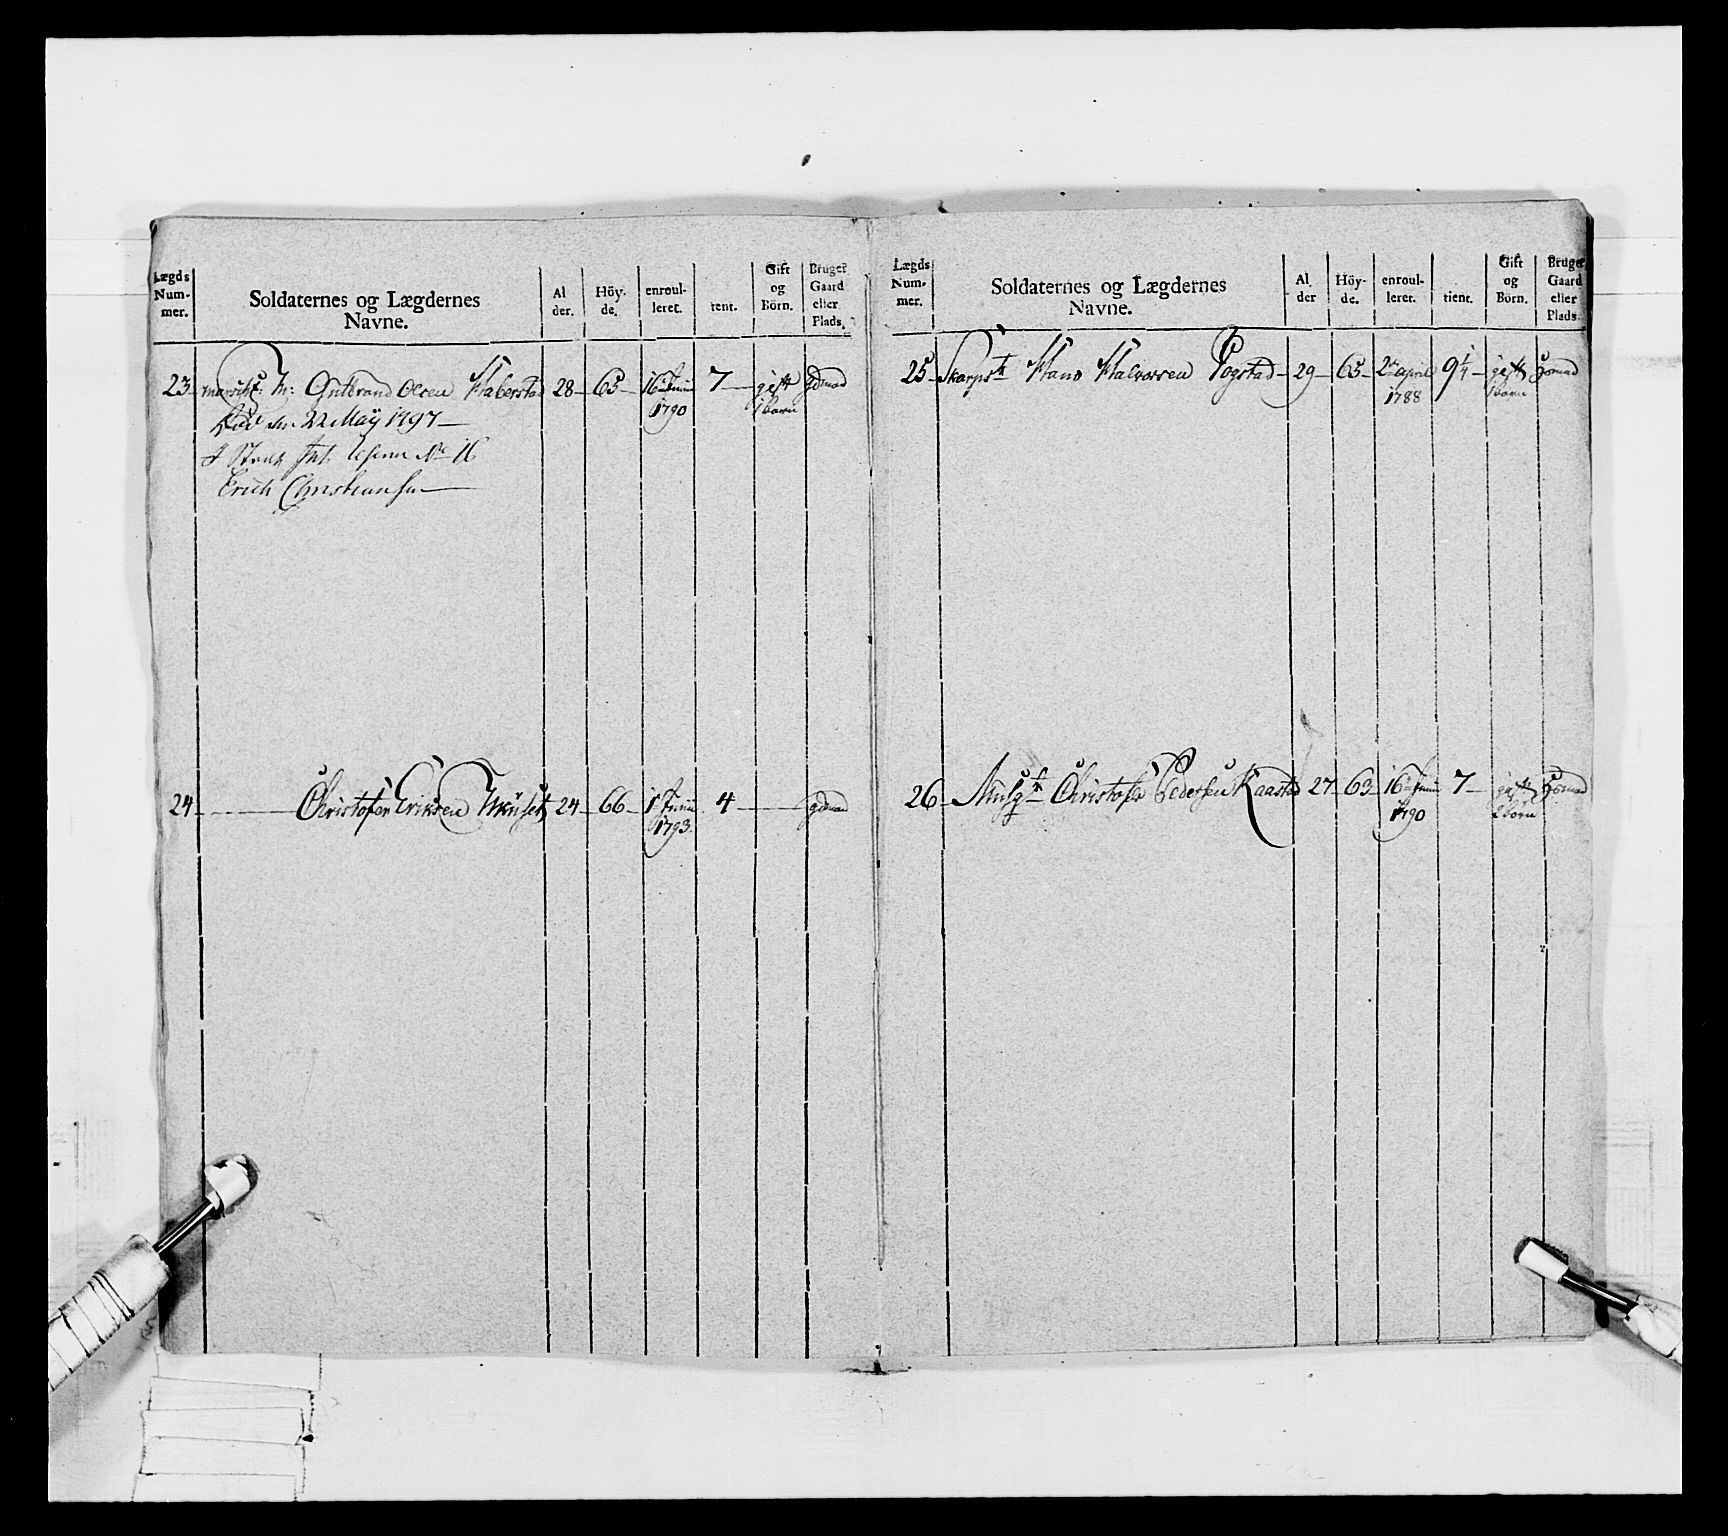 Lægds Num- mer.
Soldaternes og Lægdernes Navne.
Al der.
Höy- de.
enroul- leret.
tient.
Gift og Börn.
Bruger Gaard eller Plads.
23 Gulbrand Olsen Haberstad 28 65 16 Junii 1790 7 gift 1 barn gdmad
Død d. 22 May 1797
I Stæd Int. No 16
Erich Christiansen
24 Christofer Eriksen 24 66 1 Junii 1793 4 gdmad
Lægds Num- mer.
Soldaternes og Lægdernes Navne.
Al der
Höy- de.
enroul- leret.
tient.
Gift og Börn.
Bruger Gaard eller Plads.
25 Skarpst Hans Halvorsen Pogstad 29 65 2 april 1788 9¼ gift 1 barn
26 Musqt Christofer Pedersen Kaastad 27 63 16 Junii 1790 7 gift 2 børn